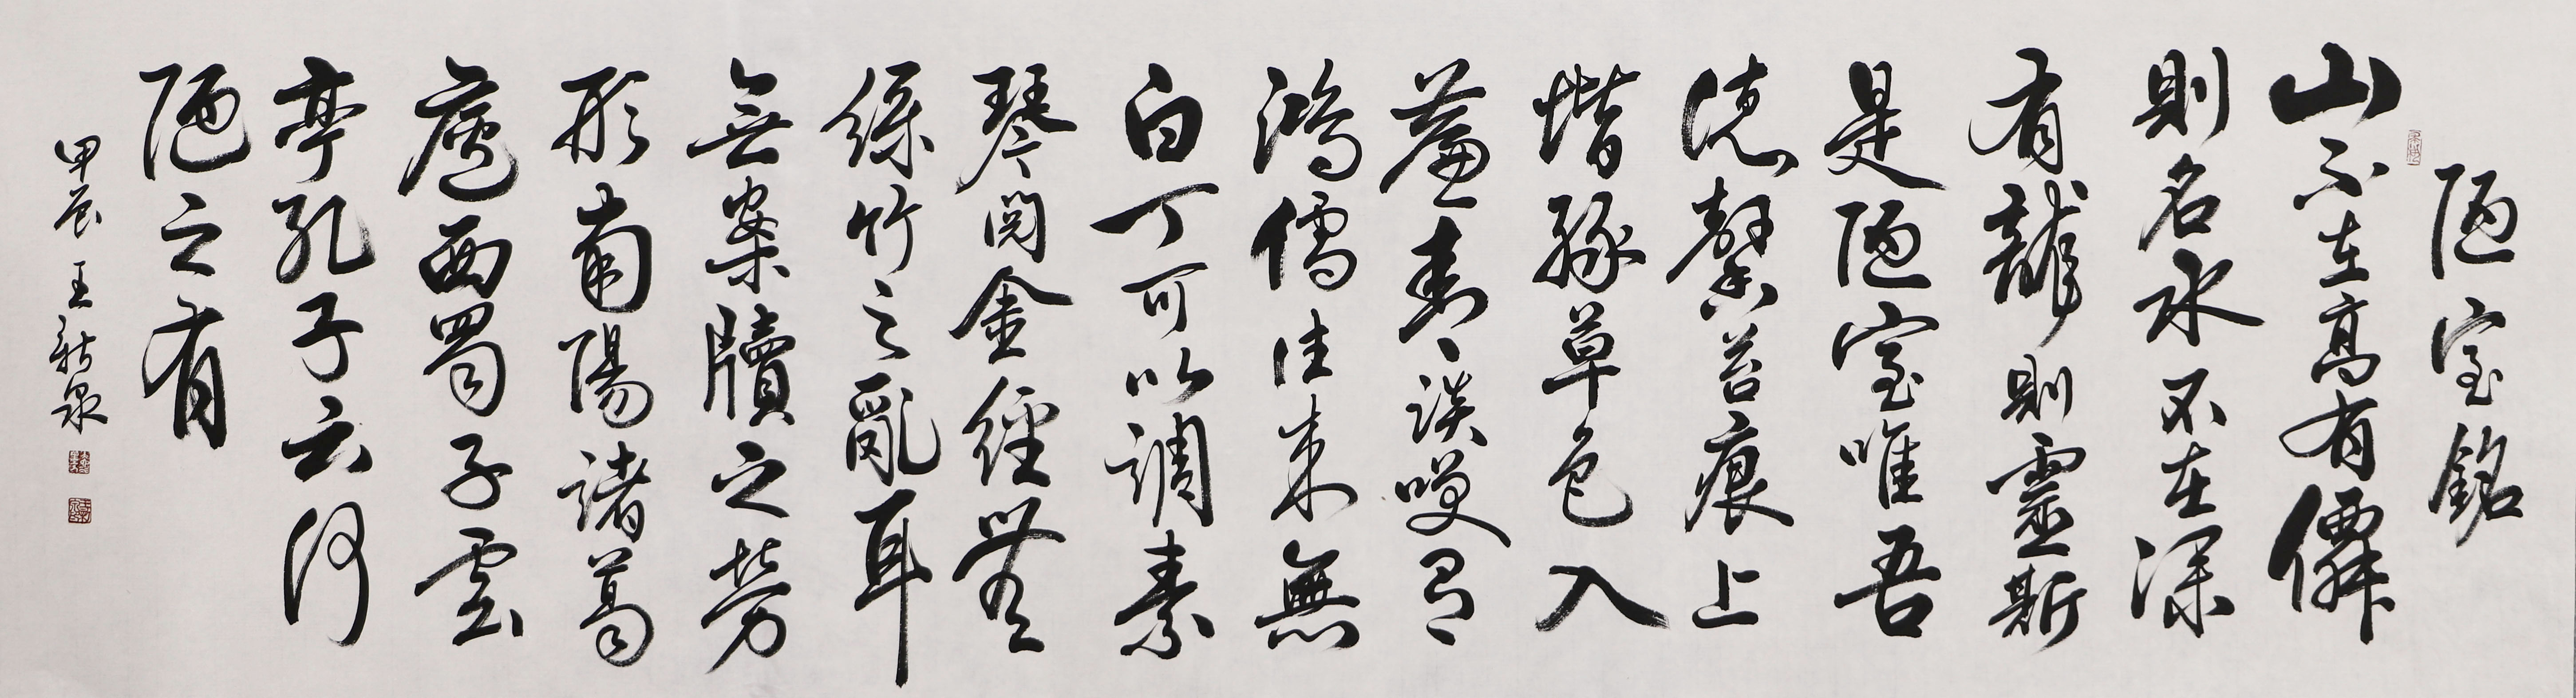 陋室銘
山不在高有僊
則名水不在深
有龍則靈斯
是陋室唯吾
德馨苔痕上
堦緑草色入
簾青談笑有
鴻儒往來無
白丁可以調素
琴閱金經無
絲竹之亂耳
無案牘之勞
形南陽諸葛
廬西蜀子雲
亭孔子云何
陋之有
甲辰 王新泉